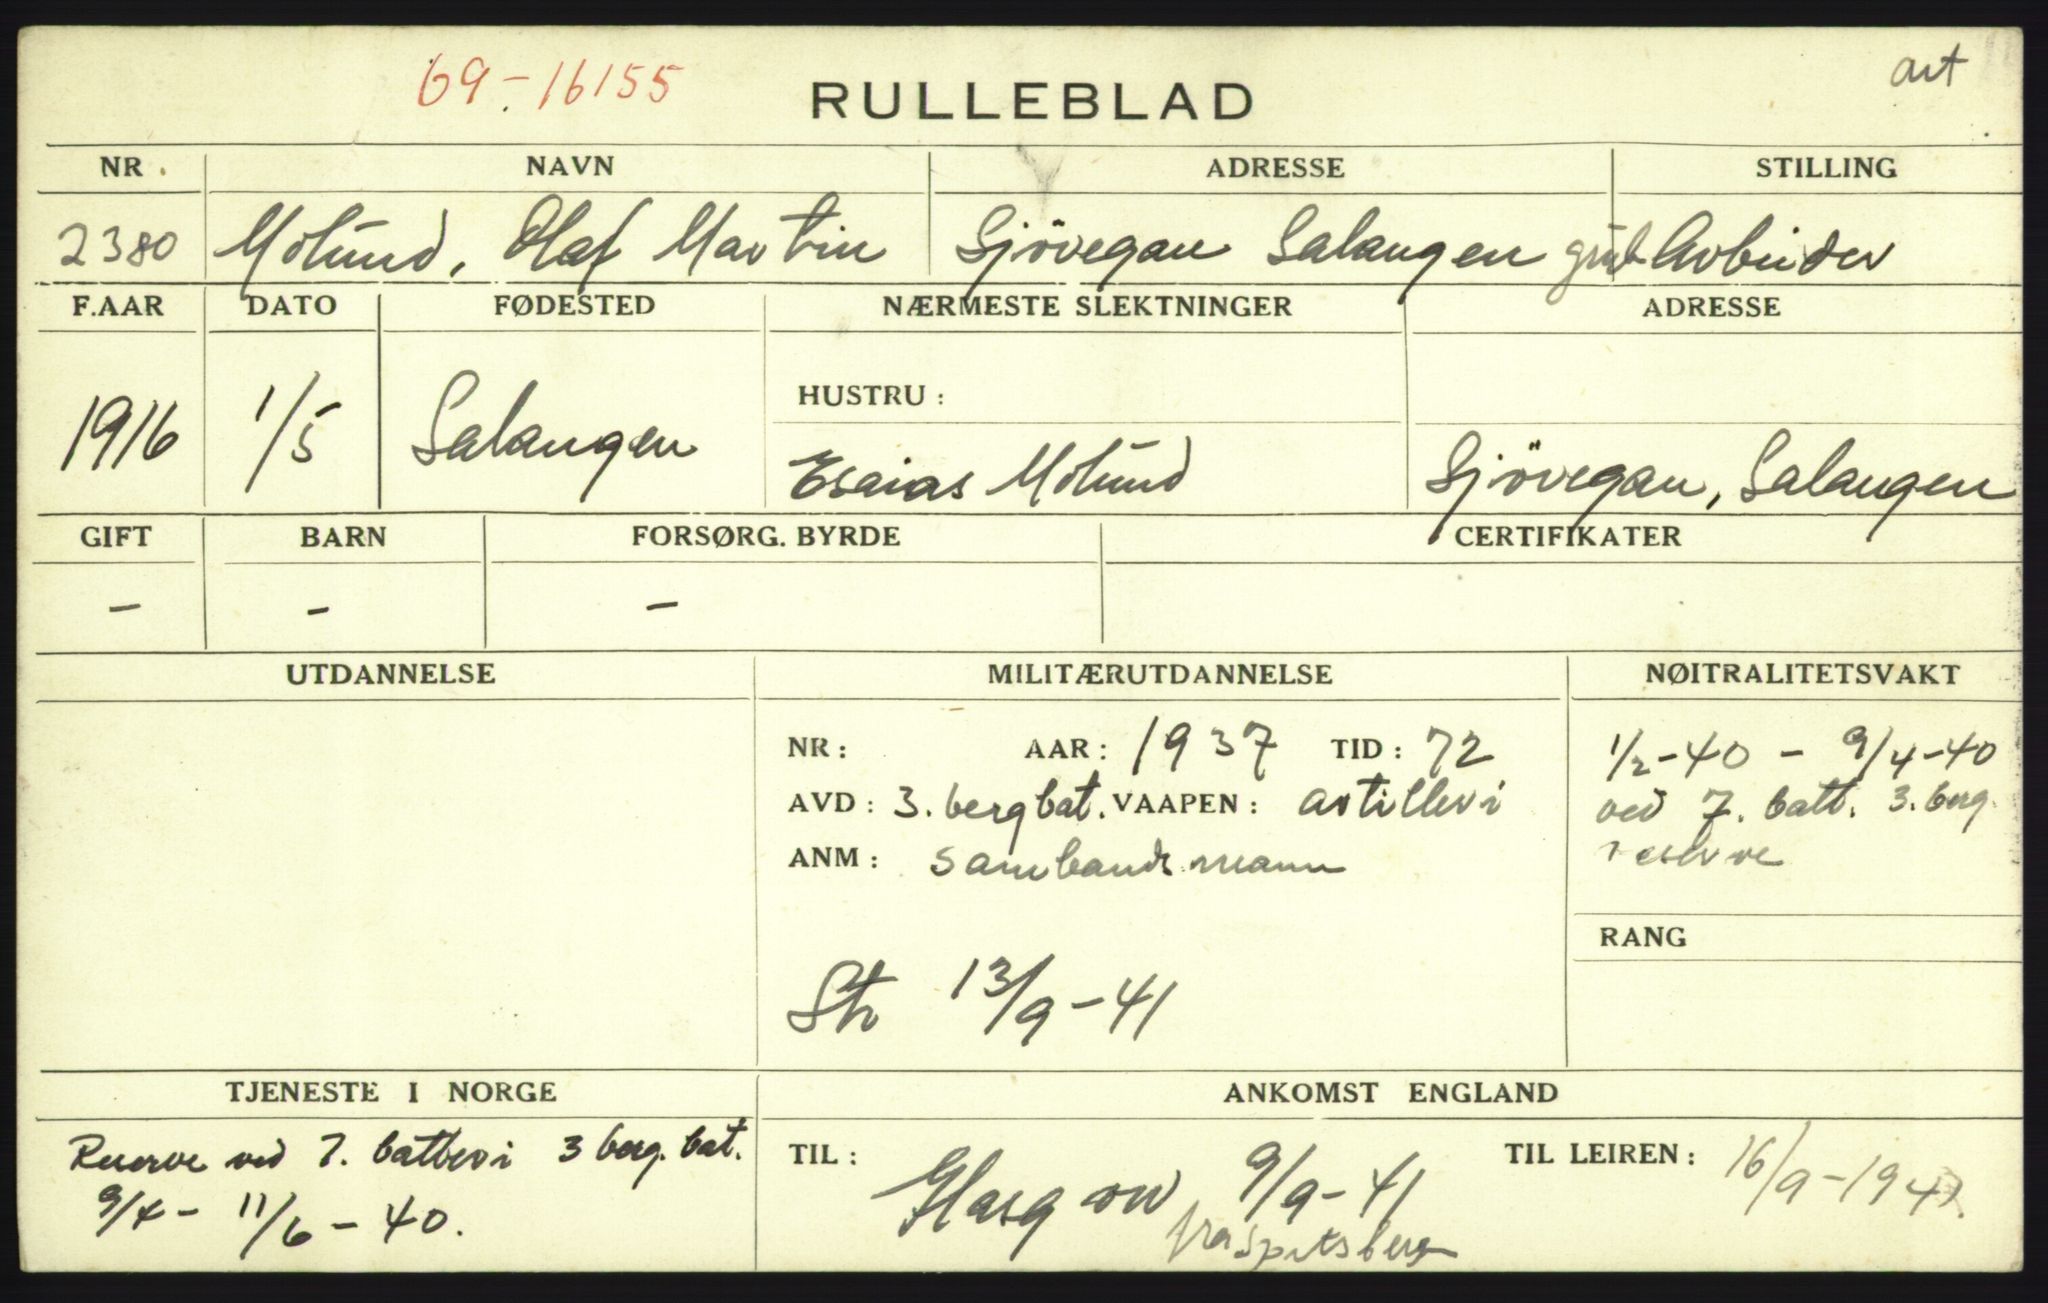 69-16155
RULLEBLAD
art
NR NAVN ADRESSE STILLING
2380 Molund, Olaf Martin Sjövegan Salangen grub Arbeider
F.AAR DATO FØDESTED NÆRMESTE SLEKTNINGER ADRESSE
HUSTRU:
1916 1/5 Salangen Esaias Molund Sjövegan, Salangen
GIFT BARN FORSØRG. BYRDE CERTIFIKATER
– – –
UTDANNELSE MILITÆRUTDANNELSE NØITRALITETSVAKT
NR: AAR: 1937 TID: 72 1/2-40 – 9/4-40
AVD: 3. bergbat. VAAPEN: artilleri ved 7. batt. 3. berg.
ANM: sambandsmann reserve
RANG
Str 13/9-41
TJENESTE I NORGE ANKOMST ENGLAND
Reserve ved 7. batteri 3 berg. bat. TIL: Glasgow 9/9-41 TIL LEIREN: 16/9-1941
9/4 – 11/6 – 40. fra Spitsberg